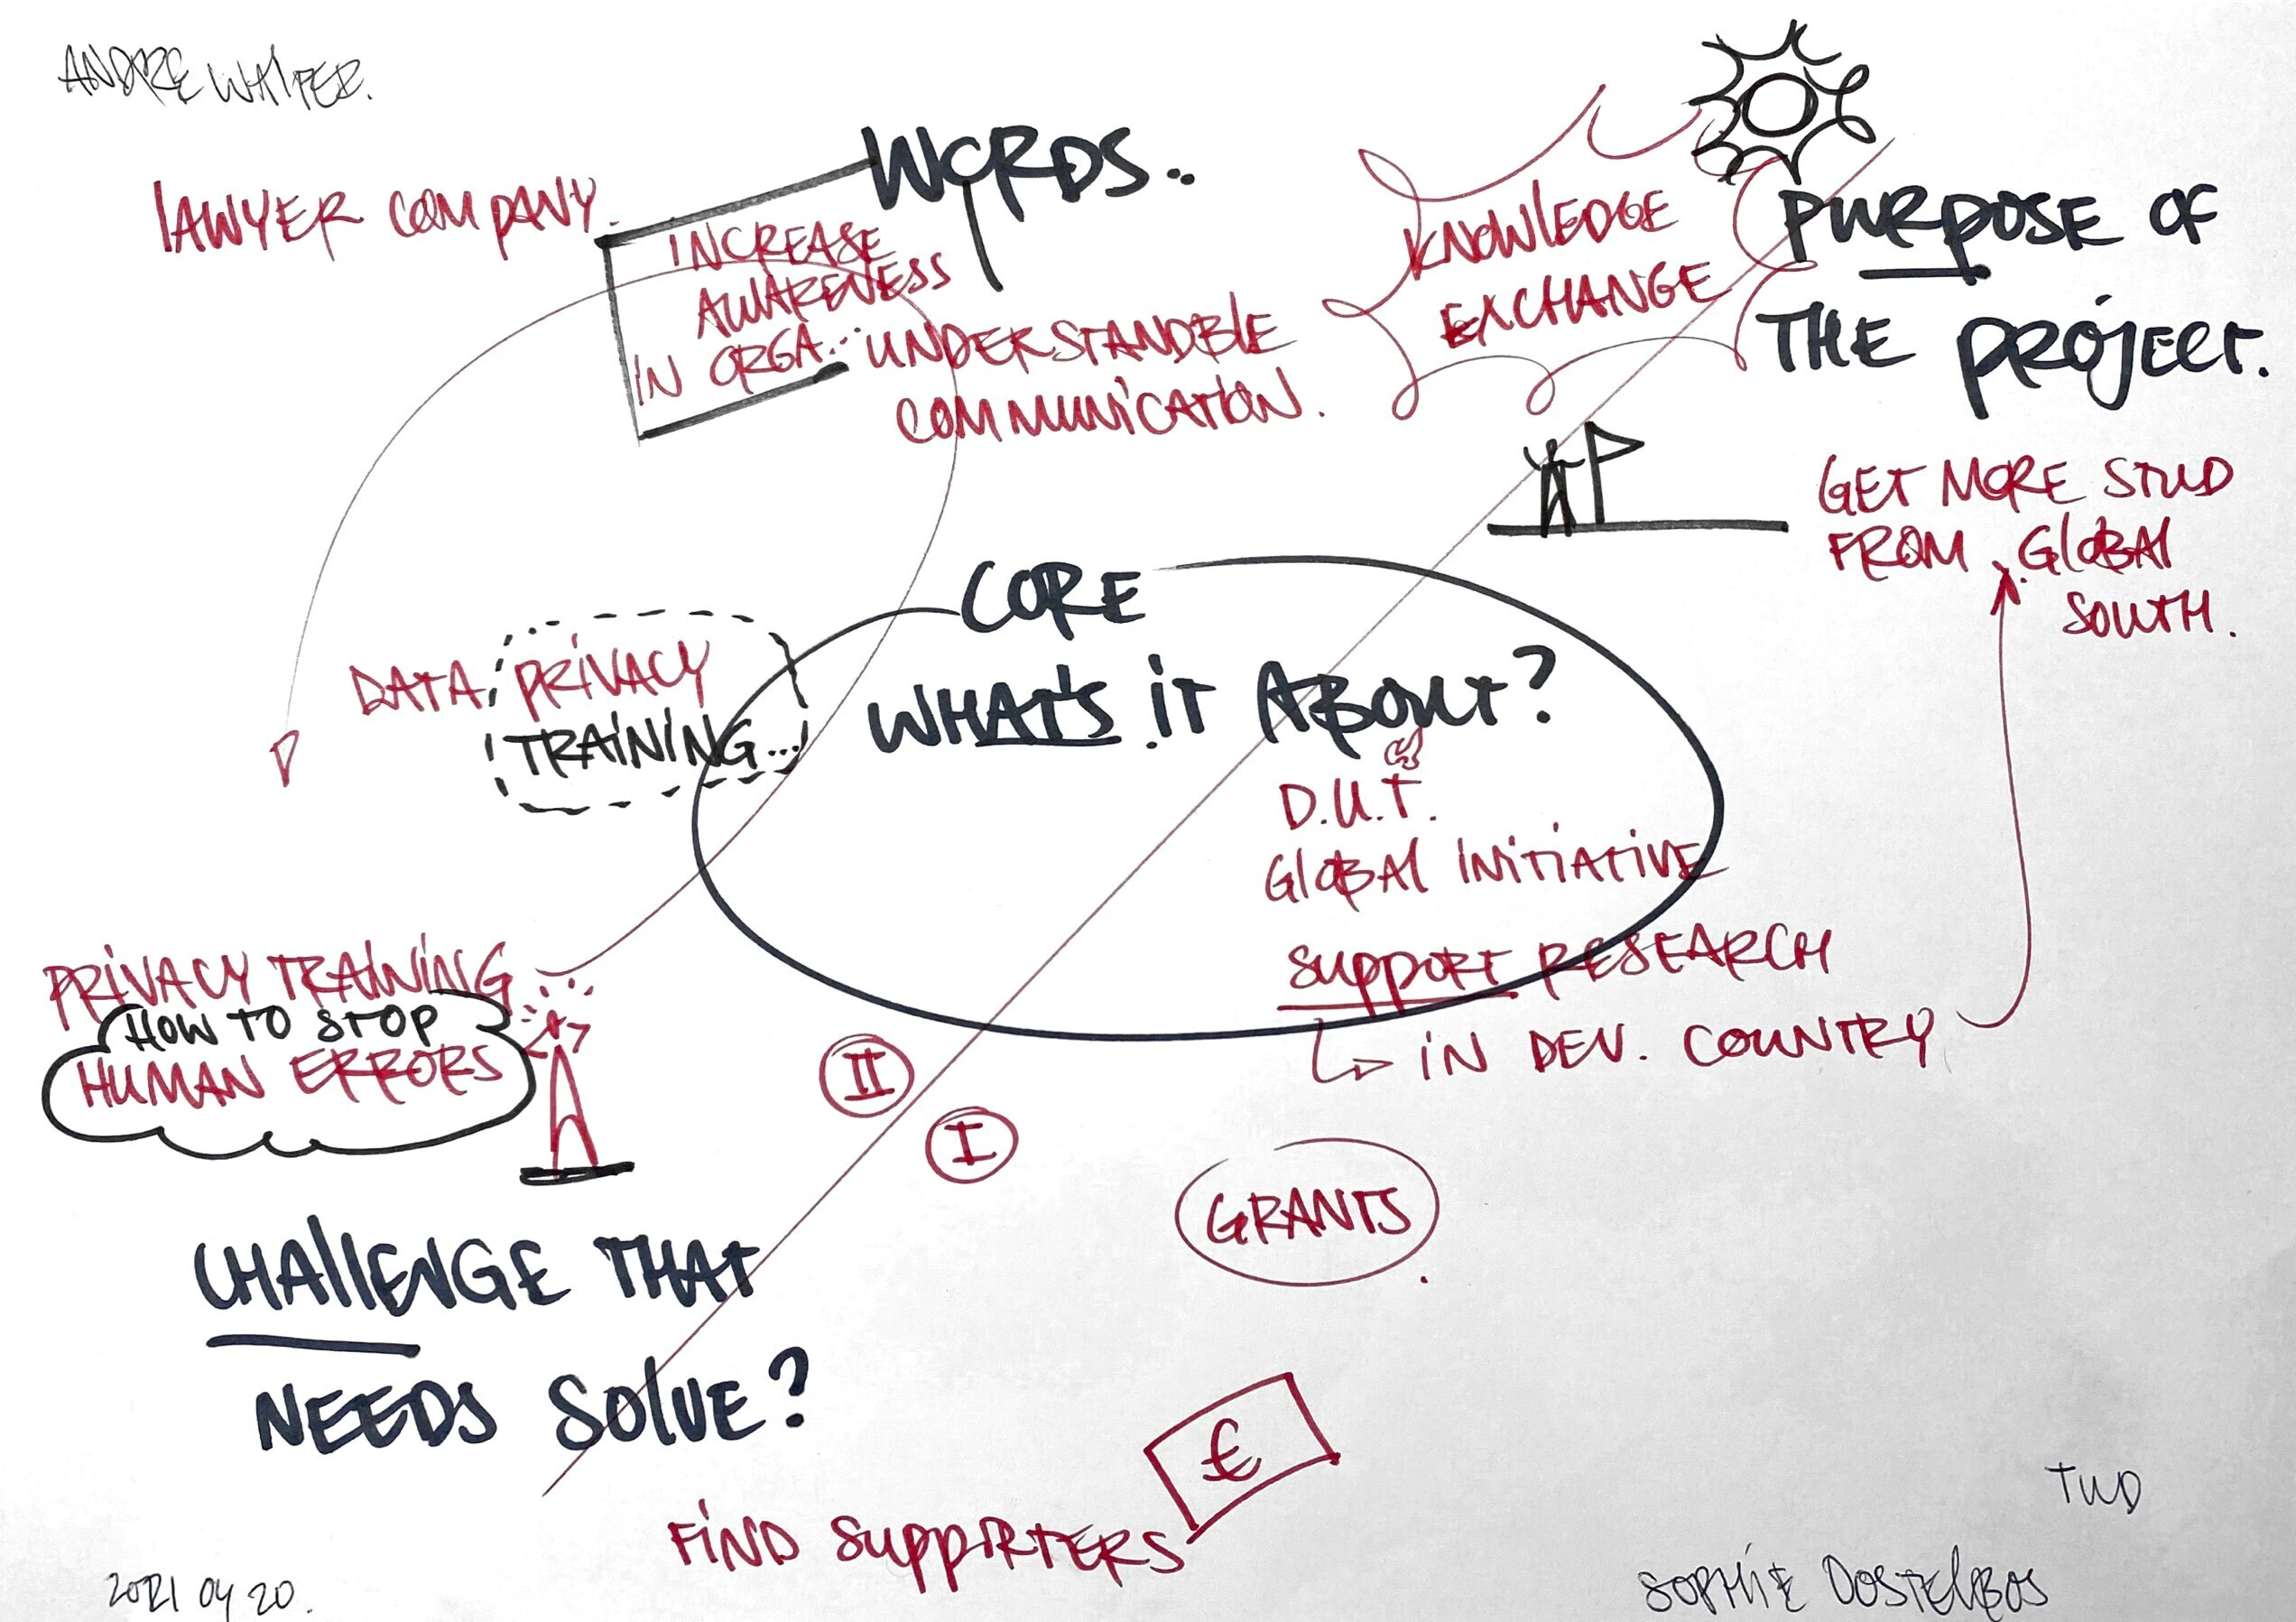 ANDRE WALTER.
WORDS..
LAWYER COMPANY.
INCREASE
AWARENESS
IN ORGA...
UNDERSTANDBLE
COMMUNICATION.
KNOWLEDGE
EXCHANGE
PURPOSE OF
THE PROJECT.
GET MORE STUD
FROM GLOBAL
SOUTH.
CORE
WHAT'S IT ABOUT?
DATA PRIVACY
TRAINING...
D.U.T.
GLOBAL INITIATIVE
SUPPORT RESEARCH
IN DEV. COUNTRY
PRIVACY TRAINING
HOW TO STOP
HUMAN ERRORS
II
I
GRANTS
CHALLENGE THAT
NEEDS SOLVE?
€
FIND SUPPORTERS
TUD
2021 04 20.
SOPHIE OOSTERBOS